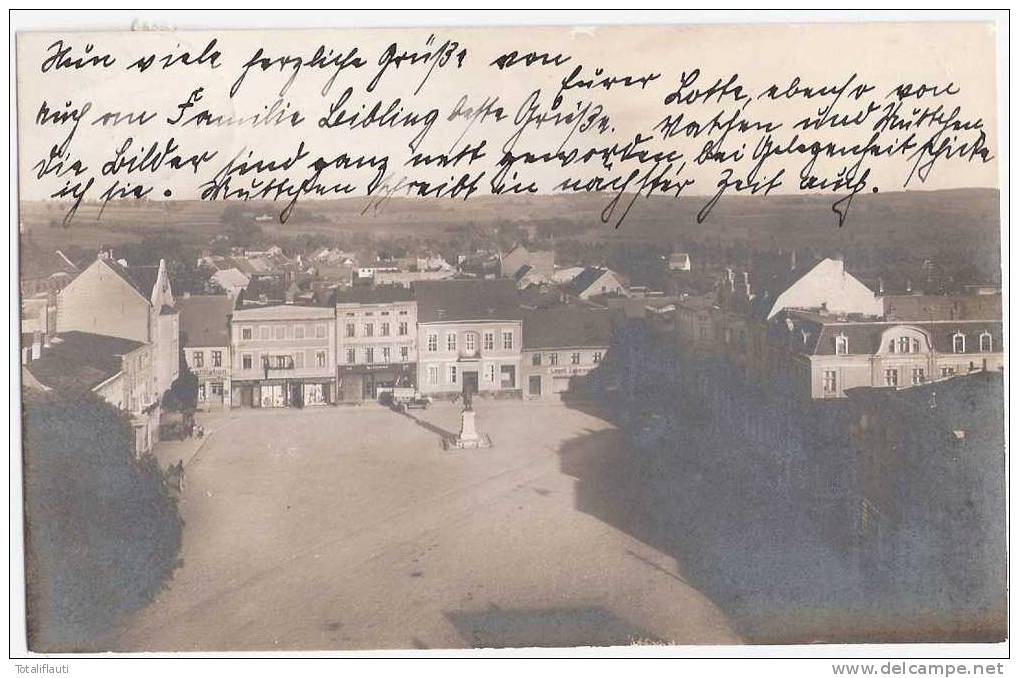 Nun viele herzliche Grüße von
Eurer Lotte, ebenso von
Auch an Familie Leibling beste Grüße. Vatchen und Muttchen
die Bilder sind ganz nett geworden, bei Gelegenheit schicke
ich sie. Muttchen schreibt in nächster Zeit auch.
Totaliflauti
www.delcampe.net